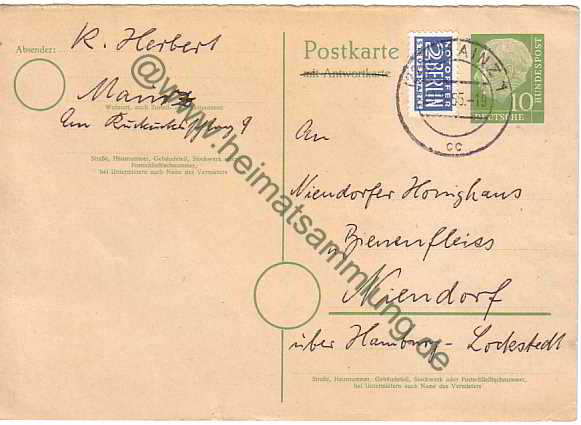 Absender:
K. Herbert
Mainz
Wohnort, auch Zustell-
Am
9
Straße, Hausnummer, Gebäudeteil, Stockwerk oder
Postschließfachnummer,
bei Untermietern auch Name des Vermieters
Postkarte
mit Antwortkarte
2
NOTOPFER
BERLIN
STEUERMARKE
MAINZ 1
55.-19
cc
10
DEUTSCHE
BUNDESPOST
An
Niendorfer Honighaus
Bienenfleiss
Niendorf
über Hamburg-Lockstedt
Straße, Hausnummer, Gebäudeteil, Stockwerk oder Postschließfachnummer,
bei Untermietern auch Name des Vermieters
@www.heimatsammlung.de